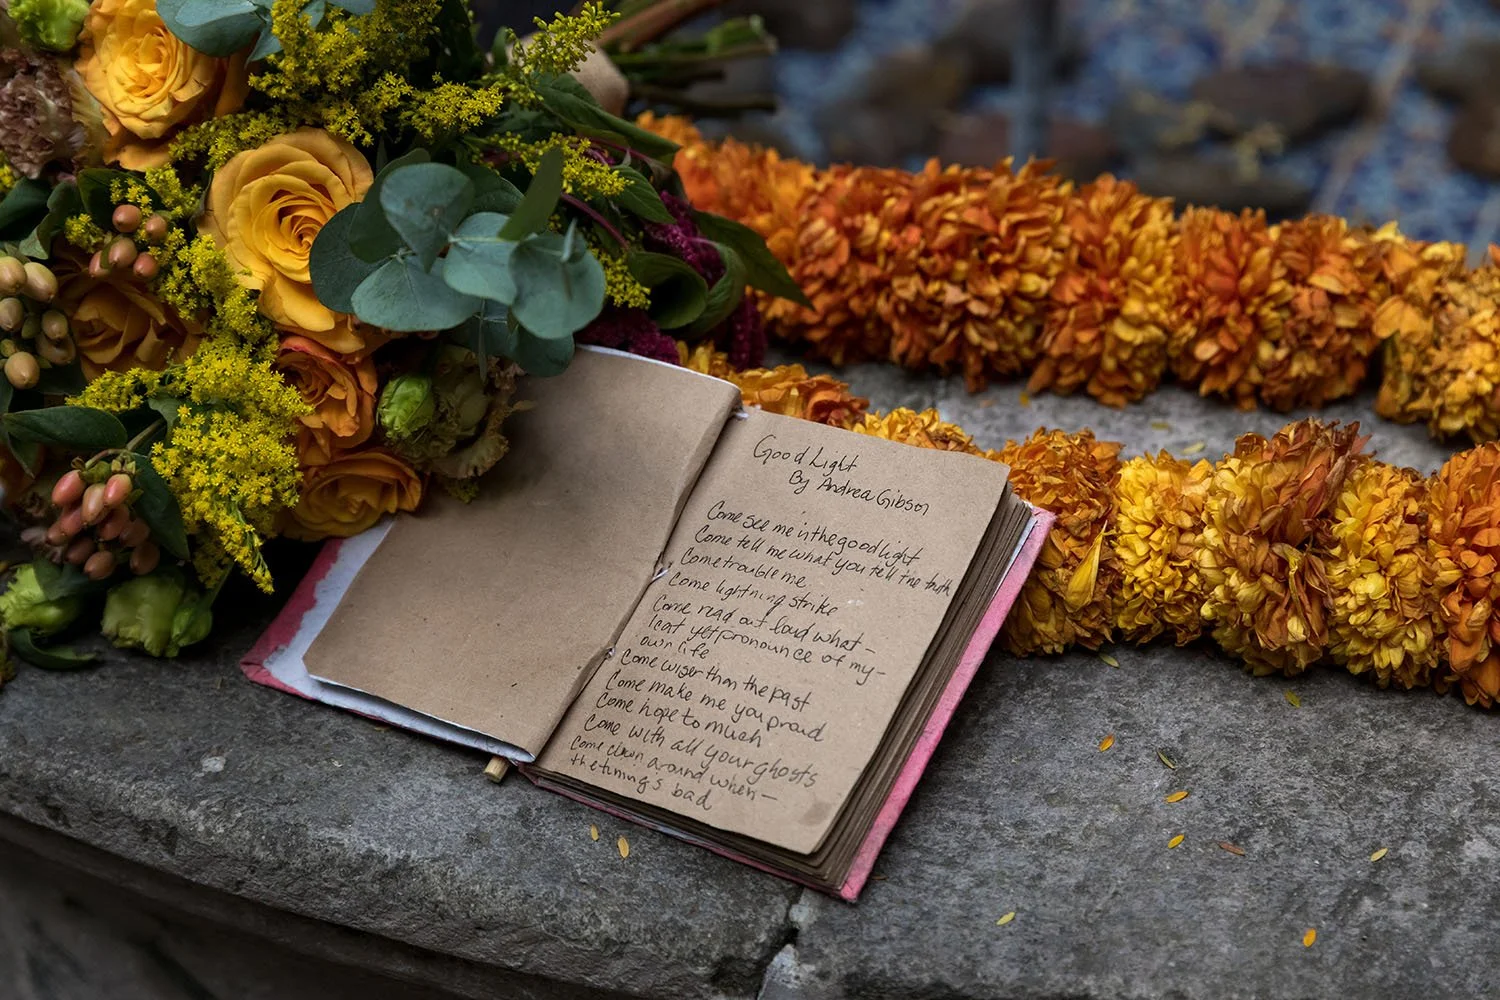 Good Light
By Andrea Gibson
Come see me in the good light
Come tell me what you tell the truth
Come trouble me.
Come lightning strike
Come read out loud what –
I cant yet pronounce of my –
own life
Come wiser than the past
Come make me you proud
Come hope to much
Come with all your ghosts
Come clown around when –
the timing's bad